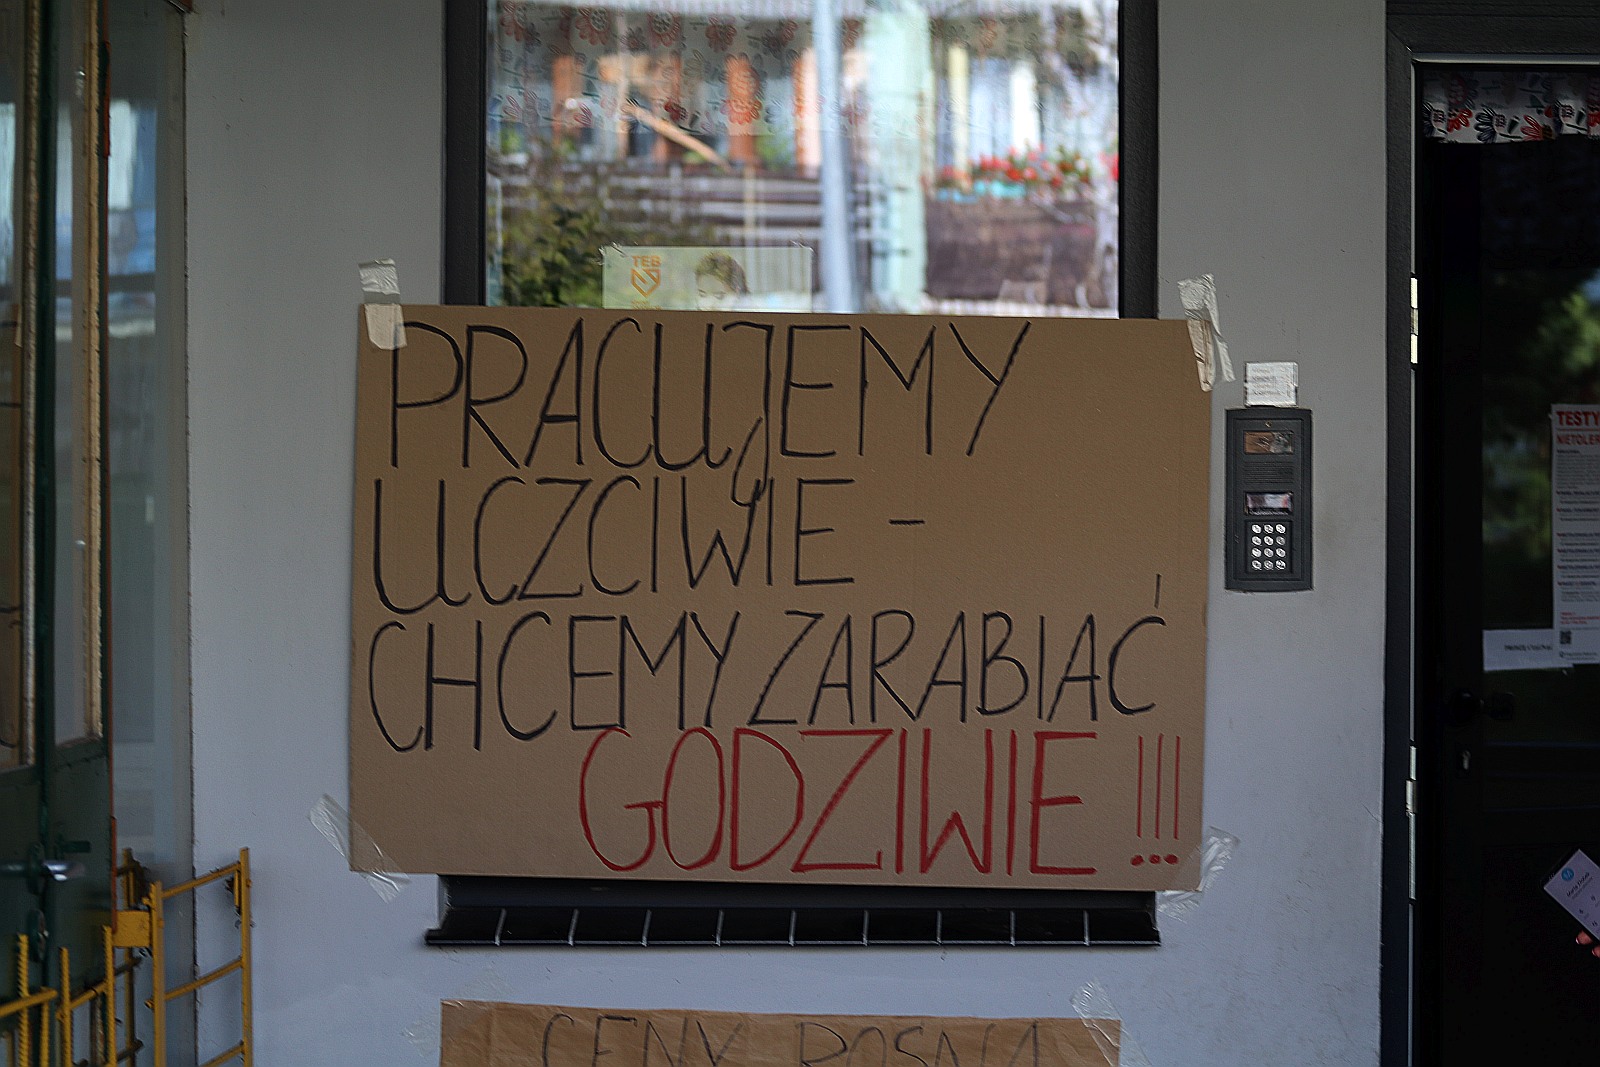 TEB
PRACUJEMY
UCZCIWIE -
CHCEMY ZARABIAĆ
GODZIWIE !!!
TESTY
NIETOLER
CENY ROSNĄ